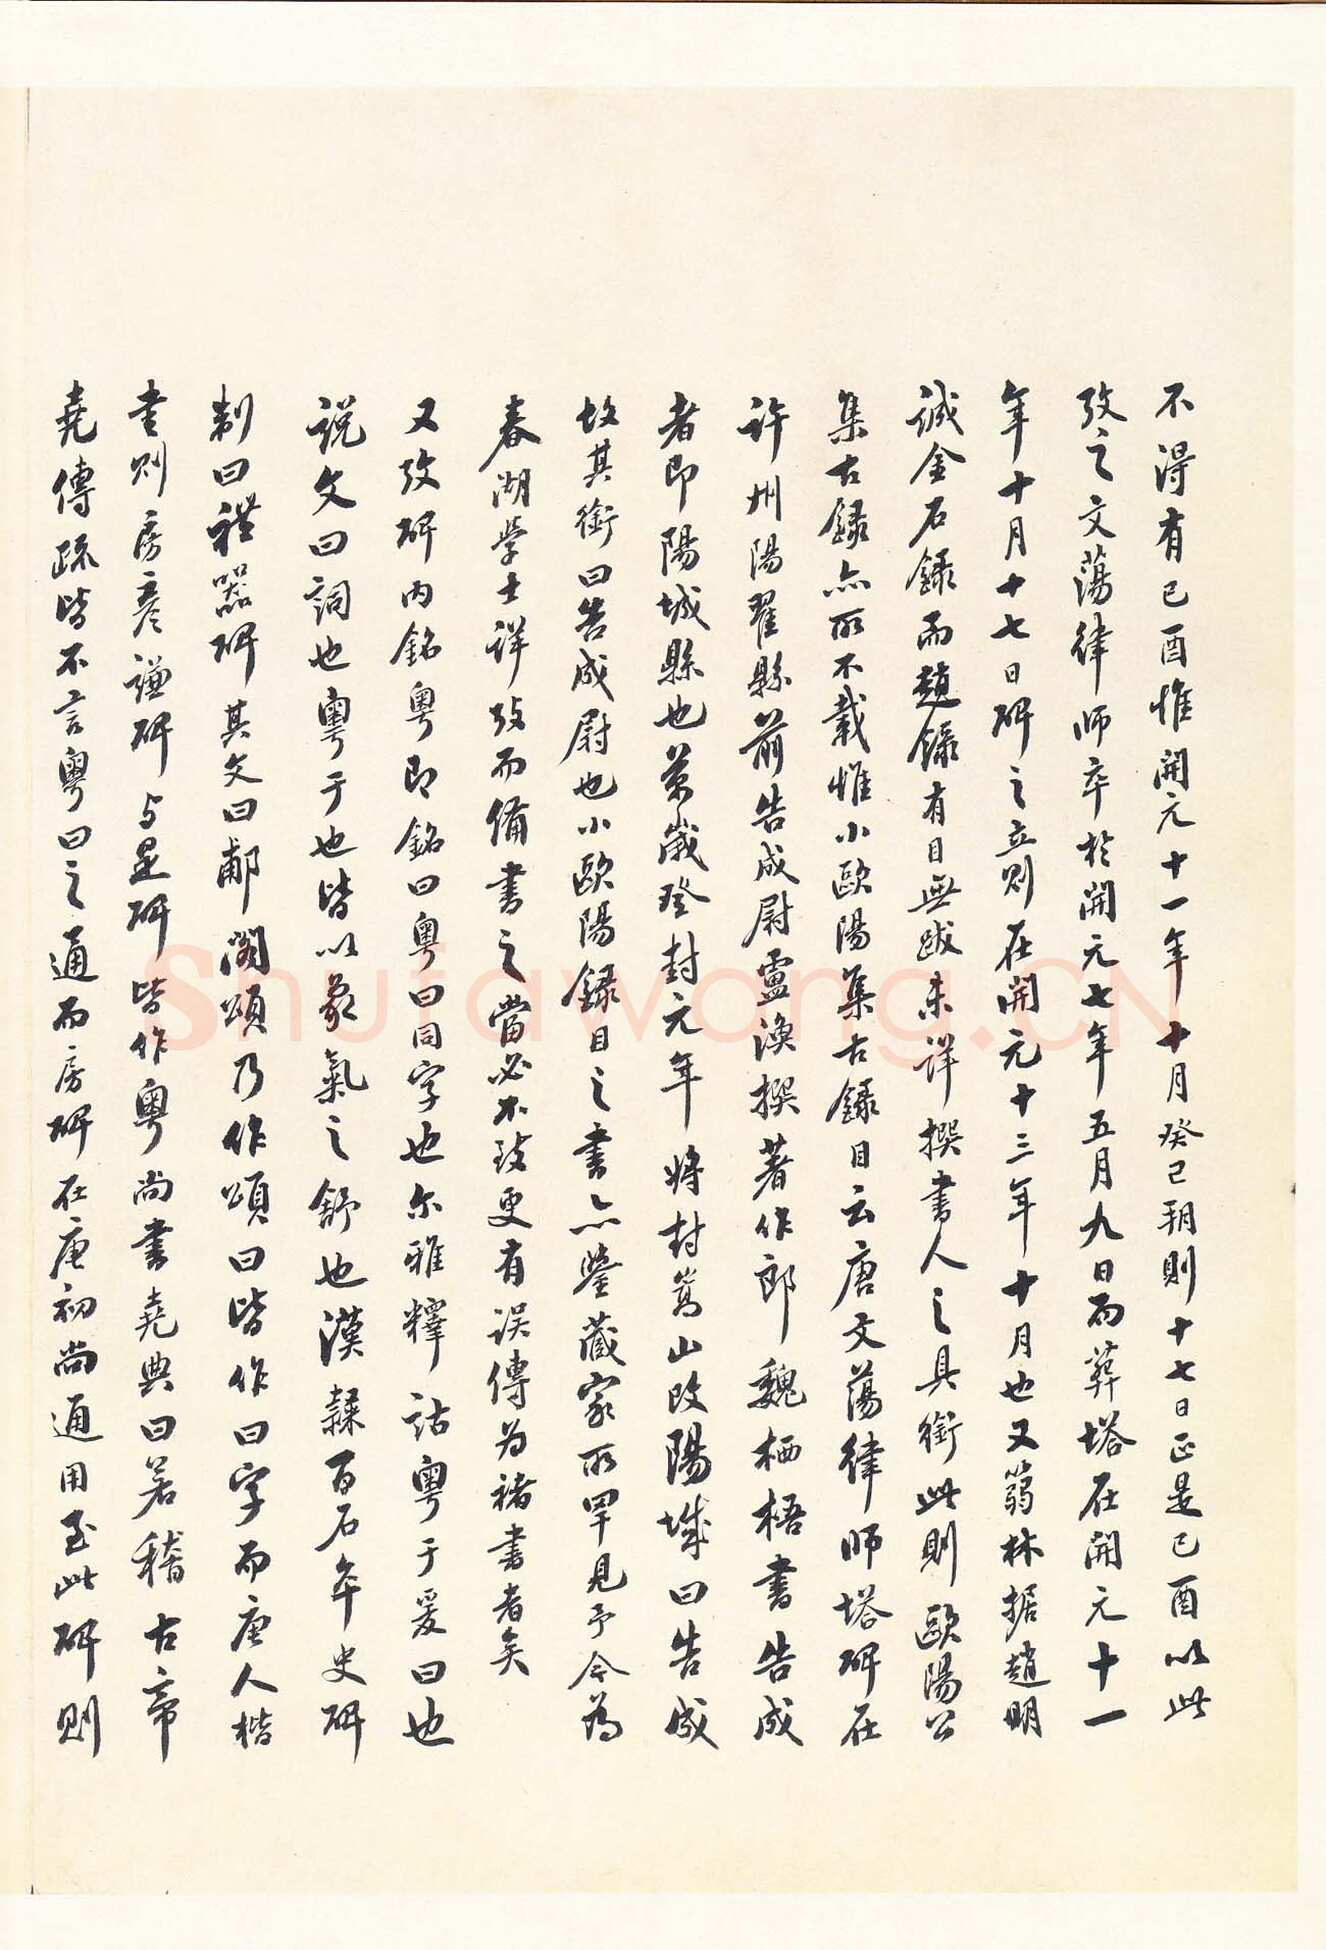 不得有己酉惟開元十一年十月癸巳朔則十七日正是己酉以此
攷之文蕩律師卒於開元七年五月九日而葬塔在開元十一
年十月十七日碑之立則在開元十三年十月也又篛林据趙明
誠金石錄而趙錄有目無跋未詳撰書人之具銜此則歐陽公
集古錄亦所不載惟小歐陽集古錄目云唐文蕩律師塔碑在
許州陽翟縣前告成尉盧渙撰著作郎魏栖梧書告成
者即陽城縣也萬歲登封元年將封嵩山改陽城曰告成
故其銜曰告成尉也小歐陽錄目之書亦鑒藏家所罕見予今為
春湖學士詳攷而備書之當必不致更有誤傳为褚書者矣
又攷碑内銘粵即銘曰粵曰同字也尔雅釋詁粵于爰曰也
説文曰詞也粵于也皆以象氣之舒也漢隸百石卒史碑
制曰禮器碑其文曰郙閣頌乃作頌曰皆作曰字而唐人楷
書則房彦謙碑与是碑皆作粵尚書堯典曰若稽古帝
堯傳疏皆不言粵曰之通而房碑在唐初尚通用至此碑則
Shufawang.CN